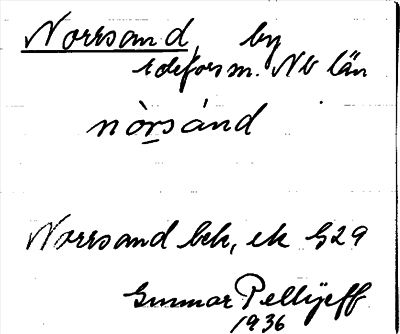 Norrsand, by
Edefors sn. Nb län
nòrsánd
Norrsand bek, ek G29
Gunnar Pellijeff
1936